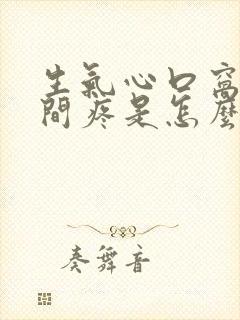 生氣心口窩
間疼是怎麼
奏舞音